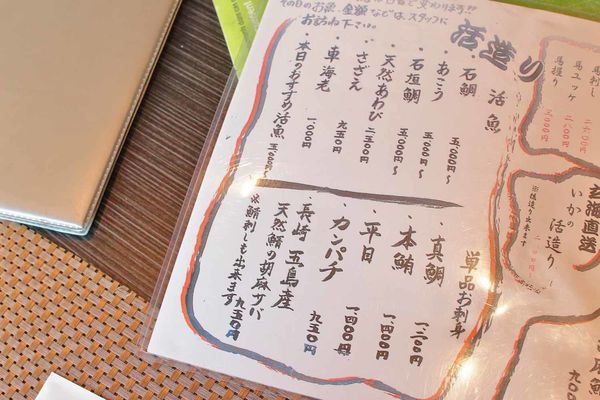 その日のお魚、金額などは、スタッフに
お訪ね下さい。
活造り
活魚
・石鯛 五、〇〇〇円〜
・あこう 五、〇〇〇円〜
・石垣鯛 五、〇〇〇円〜
・天然あわび 二、五〇〇円
・さざえ 九五〇円
・車海老 一、〇〇〇円
・本日のおすすめ活魚 五、〇〇〇円〜
単品お刺身
・真鯛 一、二〇〇円
・本鮪 一、四〇〇円
・平目 一、四〇〇円
・カンパチ 九五〇円
・長崎 五島産
天然鯖の胡麻サバ 九五〇円
※鯖刺しも出来ます
馬刺し 二、六〇〇円
馬ユッケ 二、一〇〇円
馬握り 三、〇〇〇円
玄海直送
いかの活造り
※後造り出来ます